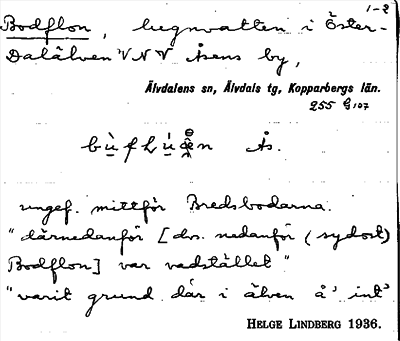 1-2
Bodflon, lugnvatten i Öster-
Dalälven V N V Åsens by,
Älvdalens sn, Älvdals tg, Kopparbergs län.
255 G 107
Ås.
ungef. mittför Bredsbodarna.
"därnedanför [dvs. nedanför (sydost)
Bodflon] var vadstället"
"varit grund där i älven å' int'
HELGE LINDBERG 1936.